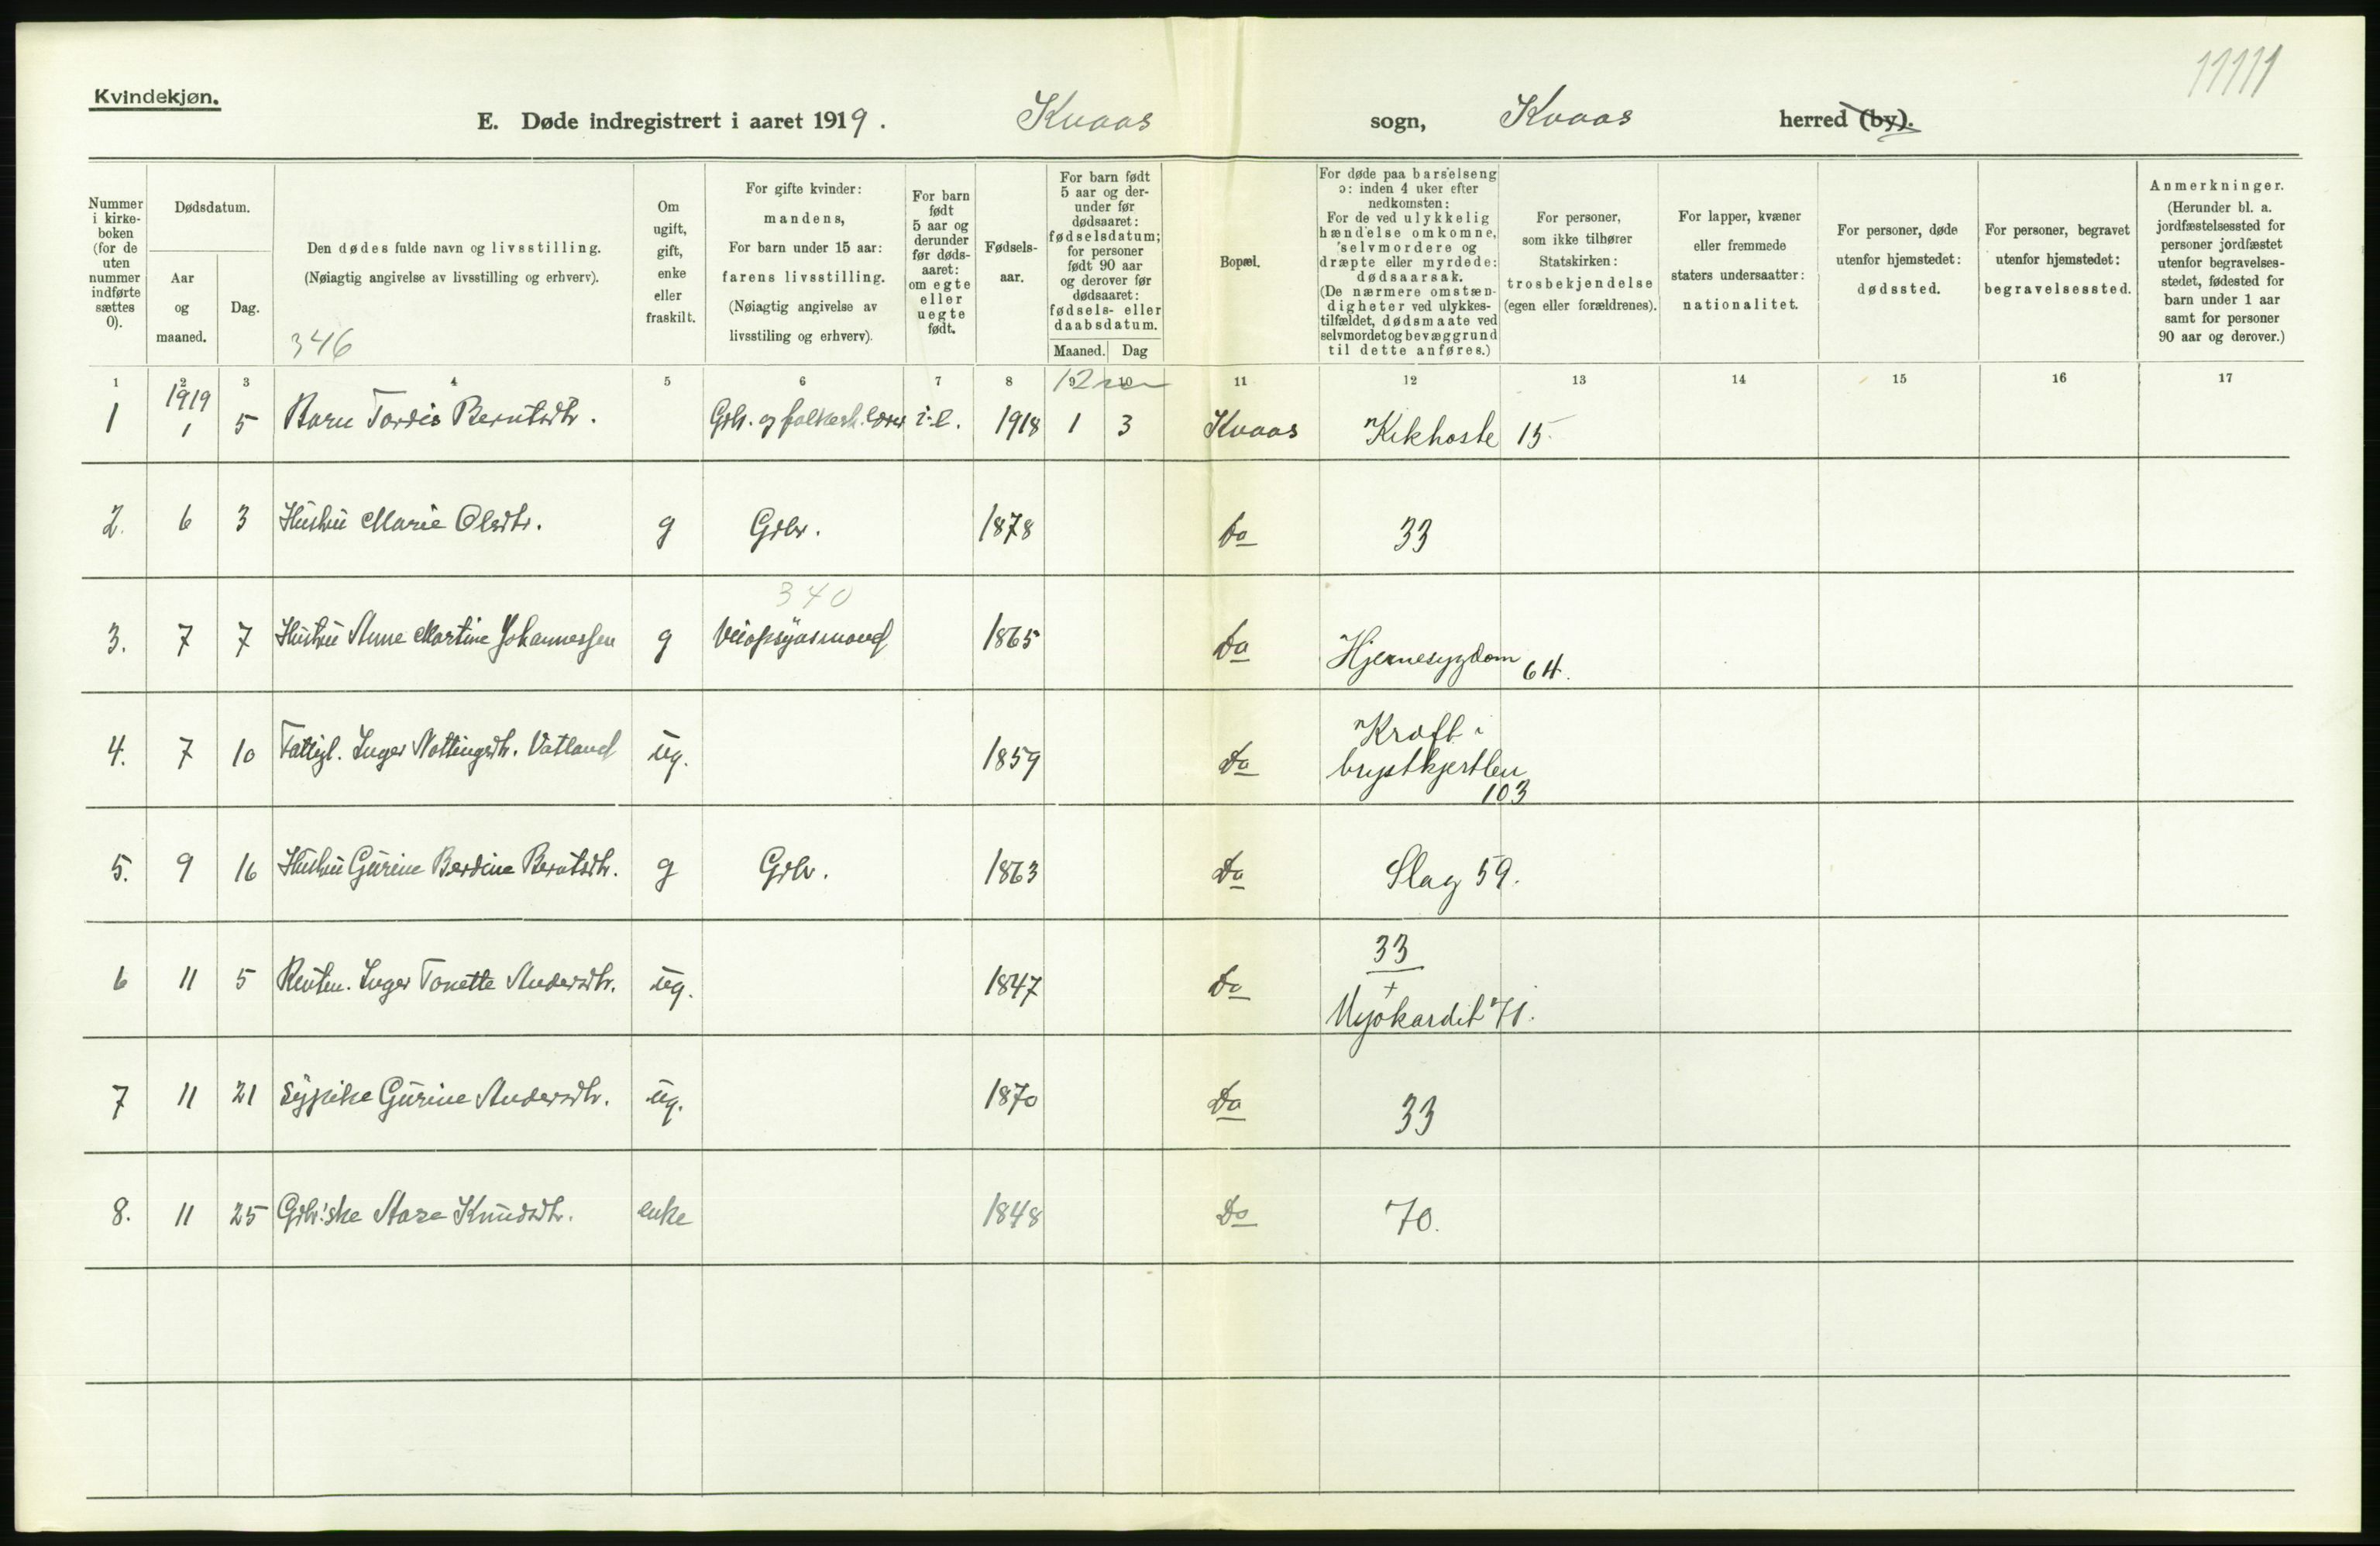 11111
Kvindekjøn.
E. Døde indregistrert i aaret 1919. Kvaas sogn, Kvaas herred (by).
Nummer i kirke-boken (for de uten nummer indførte sættes 0).
Dødsdatum.
Aar og maaned.
Dag.
Den dødes fulde navn og livsstilling.
(Nøiagtig angivelse av livsstilling og erhverv).
346
Om ugift, gift, enke eller fraskilt.
For gifte kvinder:
mandens,
For barn under 15 aar:
farens livsstilling.
(Nøiagtig angivelse av
livsstiling og erhverv).
For barn født 5 aar og derunder før døds-aaret: om egte eller uegte født.
Fødsels-aar.
For barn født 5 aar og der-under før dødsaaret: fødselsdatum; for personer født 90 aar og derover før dødsaaret: fødsels- eller daabsdatum.
Maaned. Dag
Bopæl.
For døde paa barselseng
ɔ: inden 4 uker efter
nedkomsten:
For de ved ulykkelig
hændelse omkomne,
selvmordere og
dræpte eller myrdede:
dødsaarsak.
(De nærmere omstæn-
digheter ved ulykkes-
tilfældet, dødsmaate ved
selvmordet og bevæggrund
til dette anføres.)
For personer,
som ikke tilhører
Statskirken:
trosbekjendelse
(egen eller forældrenes).
For lapper, kvæner
eller fremmede
staters undersaatter:
nationalitet.
For personer, døde
utenfor hjemstedet:
dødssted.
For personer, begravet
utenfor hjemstedet:
begravelsessted.
Anmerkninger.
(Herunder bl. a.
jordfæstelsessted for
personer jordfæstet
utenfor begravelses-
stedet, fødested for
barn under 1 aar
samt for personer
90 aar og derover.)
1 2 3 4 5 6 7 8 9 10 11 12 13 14 15 16 17
1 1919 1 5 Barn Tordis Berntsdtr. Grbr. og folkesk. lærer 1918 1 3 Kvaas "Kikhoste 15.
2. 6 3 Hustru Marie Olsdtr. g Grbr. 1878 Do 33
340
3. 7 7 Hustru Anne Martine Johannessen g Veiopsynsmand 1865 Do "Hjernesygdom 64.
4. 7 10 Fattigl. Inger Nottingsdtr. Vatland ug. 1859 Do "Kræft i
brystkjertlen
103
5. 9 16 Hustru Gurine Berdine Berntsdtr. g Grbr. 1863 Do Slag 59.
6 11 5 Renten. Inger Tonette Andersdtr. ug. 1847 Do 33
+
Myokardit 71.
7 11 21 Sypike Gurine Andersdtr. ug. 1870 Do 33
8. 11 25 Grbr.ske Aase Knudsdtr. enke 1848 Do 70.